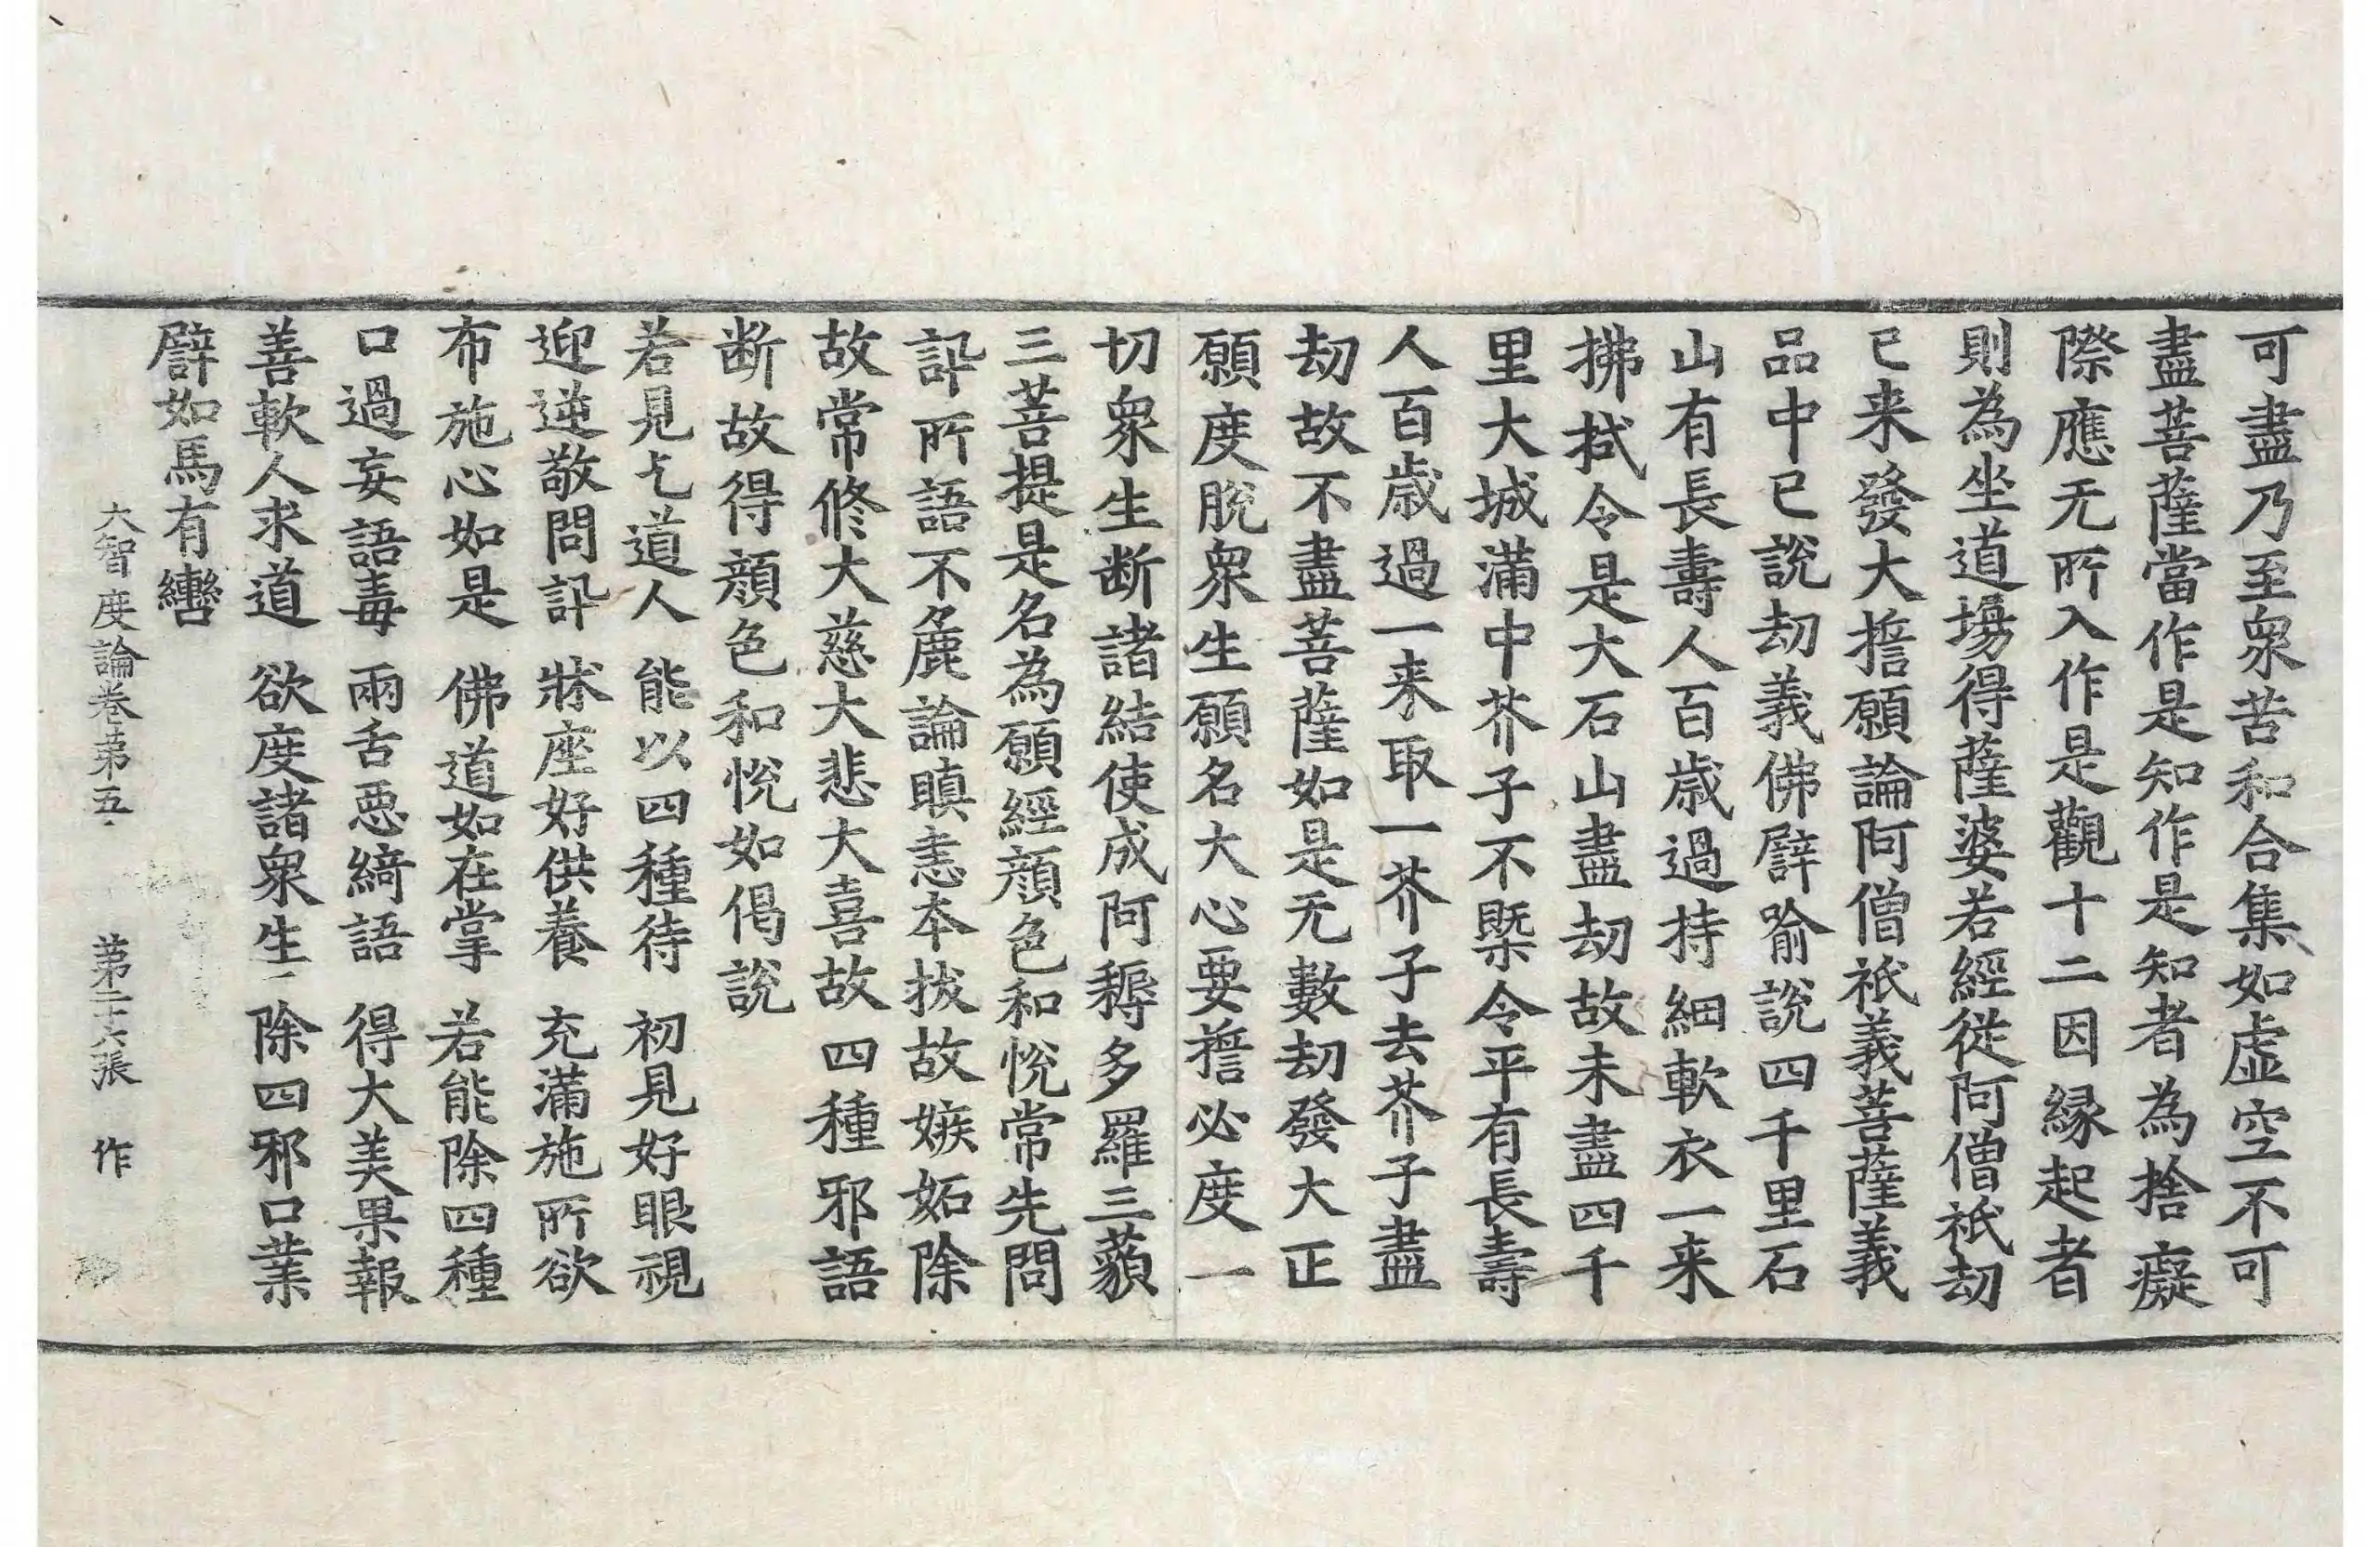 可盡乃至衆苦和合集如虛空不可
盡菩薩當作是知作是知者為捨癡
際應无所入作是觀十二因縁起者
則為坐道場得薩婆若經從阿僧祇劫
已来發大擔願論阿僧祇義菩薩義
品中已說劫義佛譬喻說四千里石
山有長壽人百歲過持細軟衣一来
拂拭令是大石山盡劫故未盡四千
里大城滿中芥子不槩令平有長壽
人百歲過一来取一芥子去芥子盡
劫故不盡菩薩如是无數劫發大正
願度脫衆生願名大心要擔必度一
切衆生断諸結使成阿耨多羅三藐
三菩提是名為願經顔色和悅常先問
訊所語不麁論瞋恚本拔故嫉妬除
故常修大慈大悲大喜故四種邪語
断故得顔色和悅如偈說
若見乞道人　能以四種待　初見好眼視
迎逆敬問訊　牀座好供養　充滿施所欲
布施心如是　佛道如在掌　若能除四種
口過妄語毒　兩舌惡綺語　得大美果報
善軟人求道　欲度諸衆生　除四邪口業
譬如馬有轡
大智度論卷第五　第二十六張　作